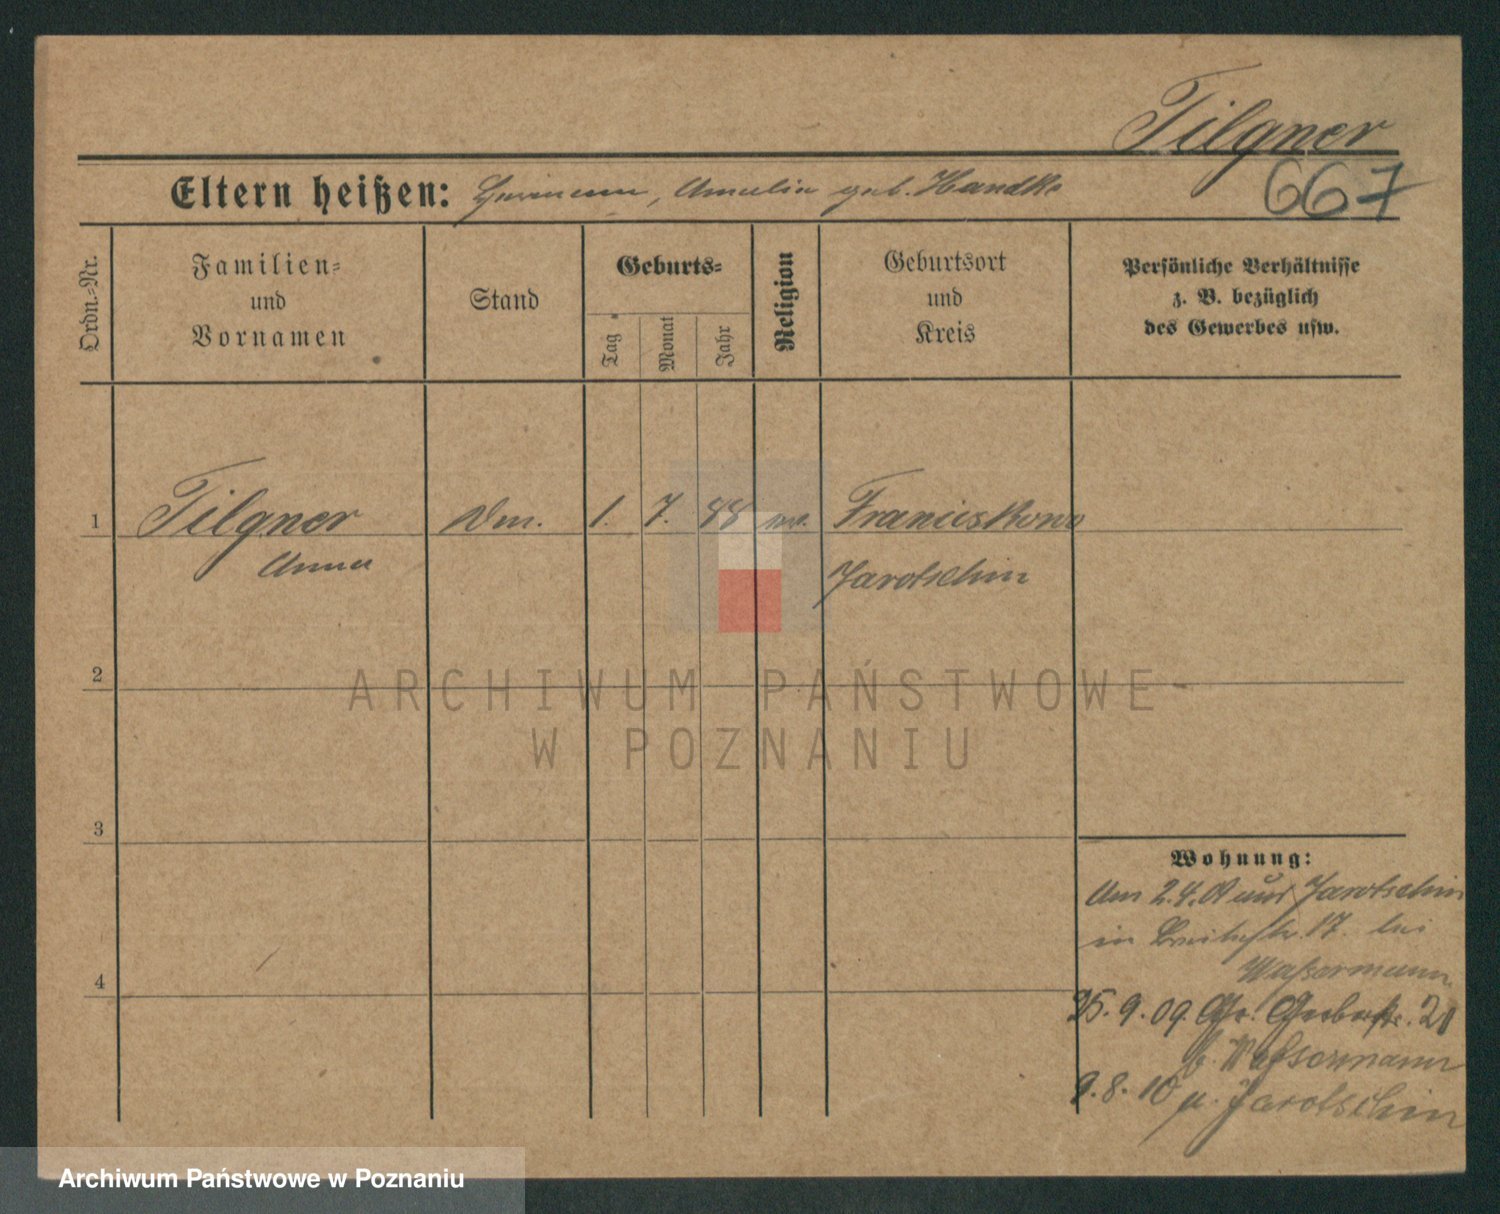 Tilgner
667
Eltern heißen: Hermann, Amalie geb. Handke
Ordn.-Nr.
Familien-
und
Vornamen
Stand
Geburts-
Tag
Monat
Jahr
Religion
Geburtsort
und
Kreis
Persönliche Verhältnisse
z. B. bezüglich
des Gewerbes usw.
1
Tilgner
Anna
1. 7. 88
Franciskowo
Jarotschin
2
3
4
Wohnung:
Am 2.4.09 aus Jarotschin
in Breitestr. 17. bei
Waßermann
25. 9. 09. Gr. Gerberstr. 21
b. Wassermann
9. 8. 10 n. Jarotschin
ARCHIWUM PAŃSTWOWE
W POZNANIU
Archiwum Państwowe w Poznaniu